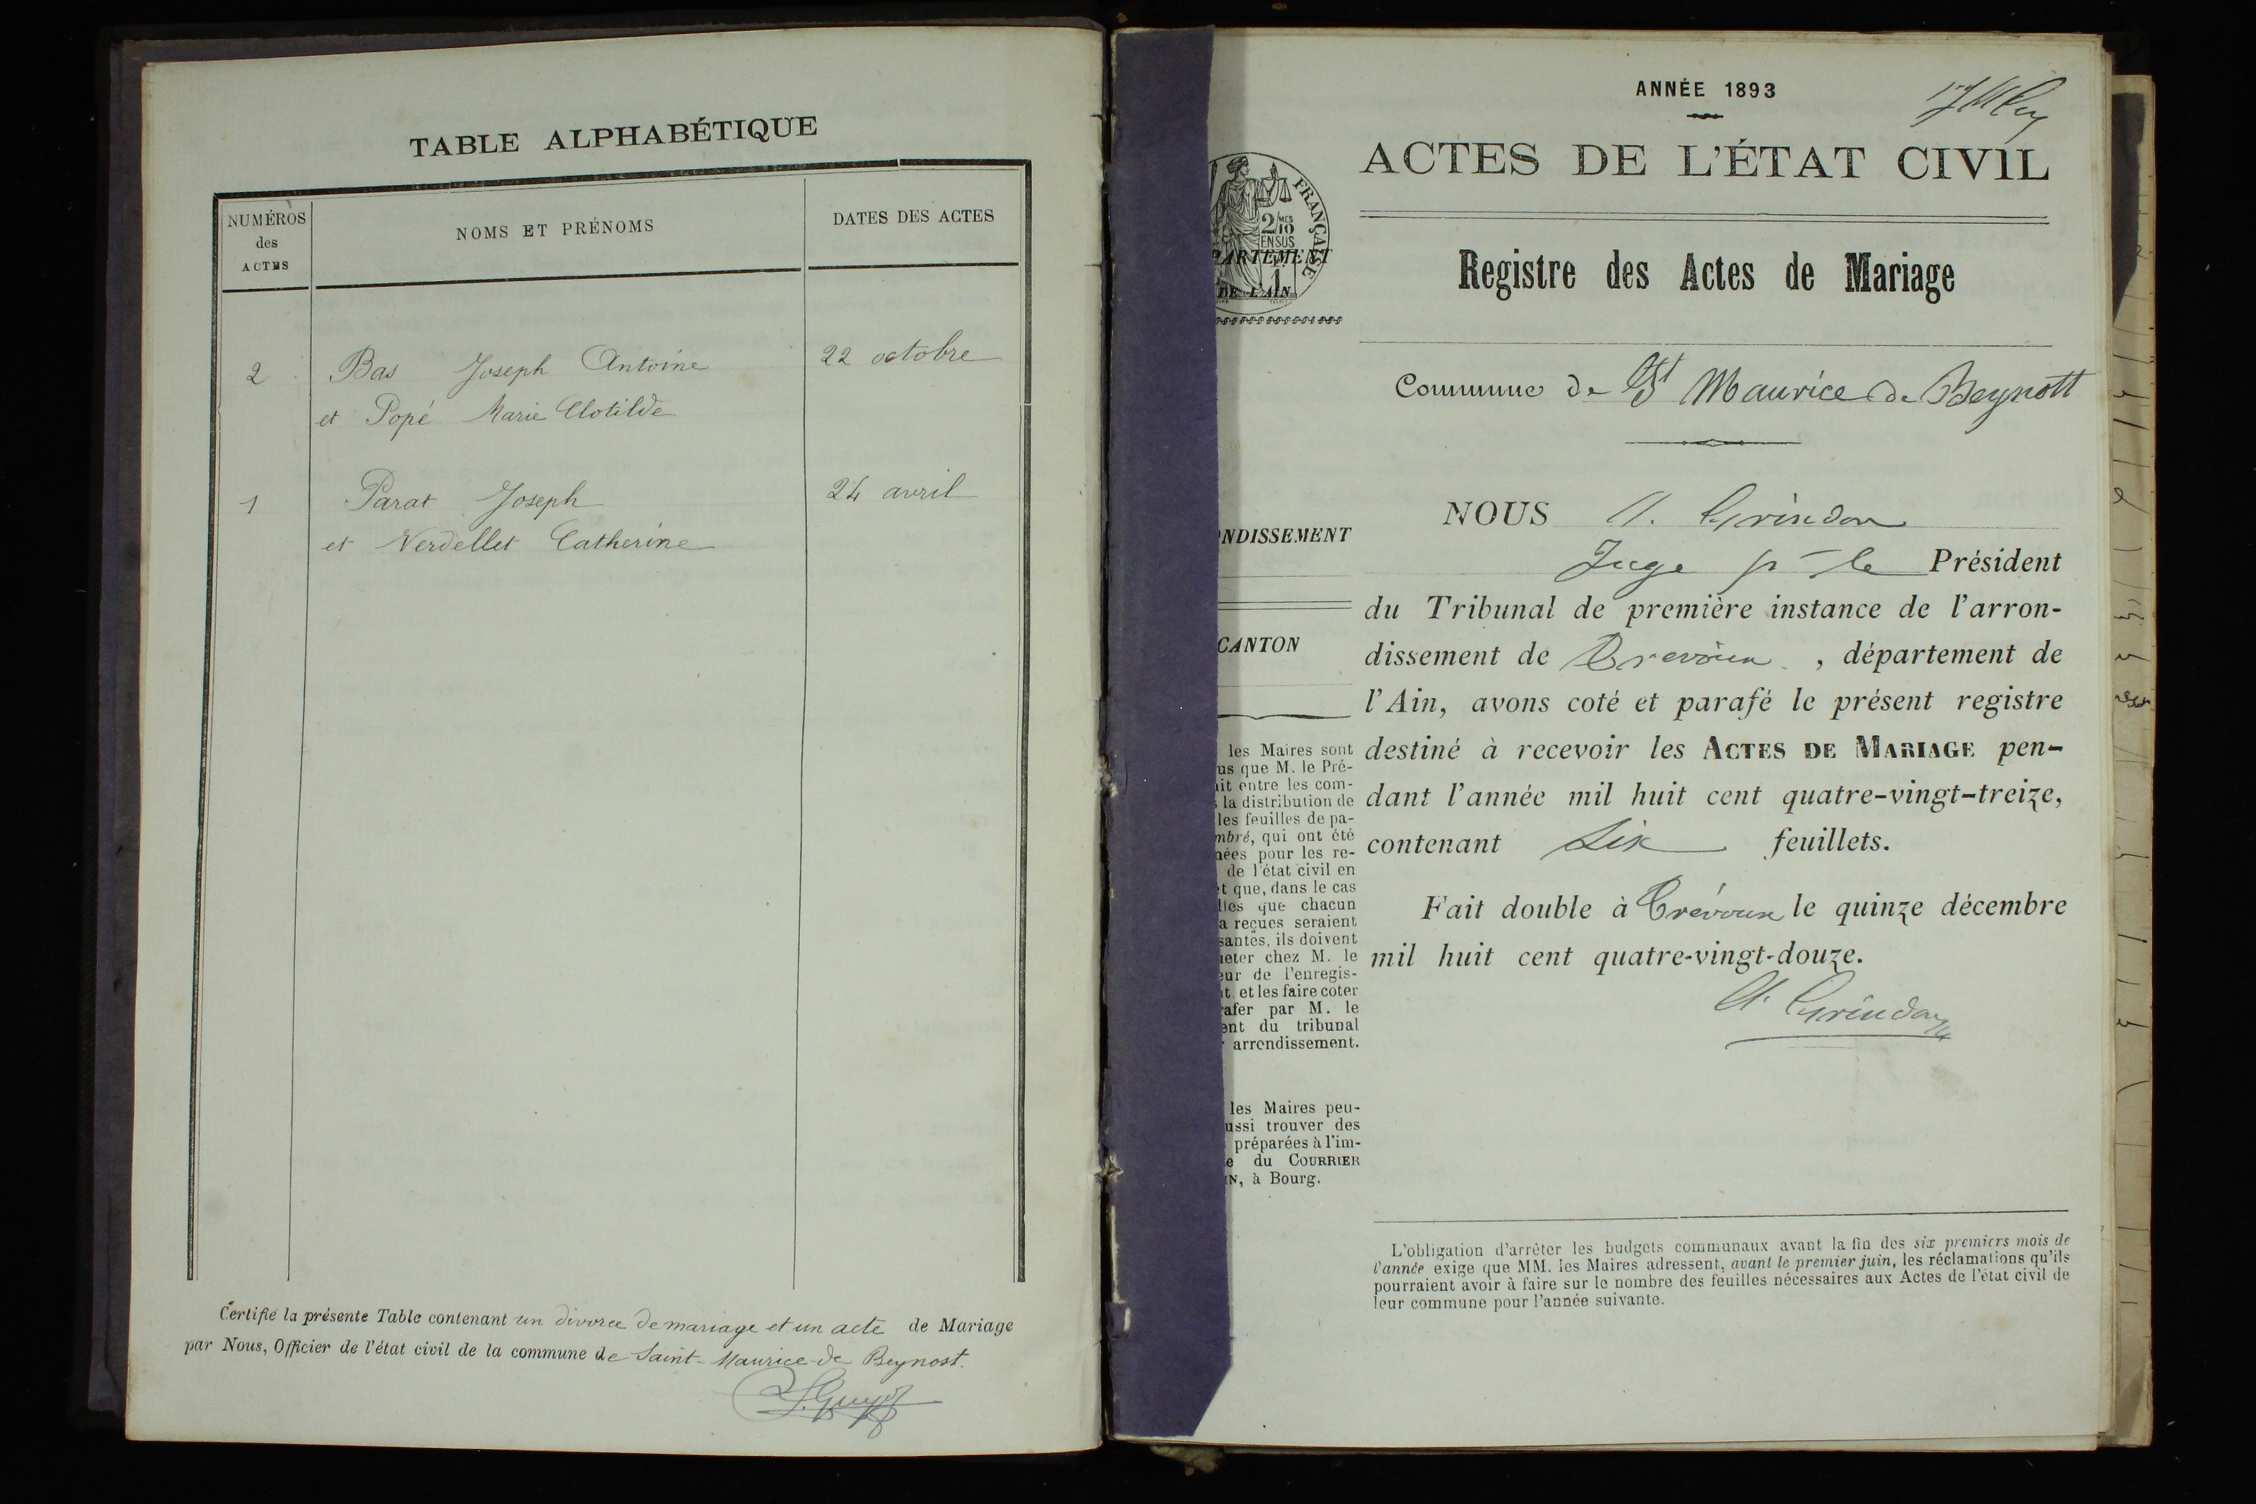 TABLE ALPHABÉTIQUE
NUMÉROS
des
ACTES
NOMS ET PRÉNOMS
DATES DES ACTES
2 Bas Joseph Antoine 22 octobre
et Popé Marie Clotilde
1 Parat Joseph 24 avril
et Verdellet Catherine
Certifié la présente Table contenant un divorce de mariage et un acte de Mariage
par Nous, Officier de l'état civil de la commune de Saint-Maurice-de Beynost.
ANNÉE 1893
ACTES DE L'ÉTAT CIVIL
FRANÇAISE
2/10
EN SUS
PARTEMENT
DE L'AIN
Registre des Actes de Mariage
Commune de St Maurice de Beynost
NOUS A. Grindon
Juge pr le Président
du Tribunal de première instance de l'arron-
dissement de Trevoux, département de
l'Ain, avons coté et parafé le présent registre
destiné à recevoir les ACTES DE MARIAGE pen-
dant l'année mil huit cent quatre-vingt-treize,
contenant Six feuillets.
Fait double à Trévoux le quinze décembre
mil huit cent quatre-vingt-douze.
A. Grindon
NDISSEMENT
CANTON
les Maires sont
us que M. le Pré-
ait entre les com-
la distribution de
les feuilles de pa-
mbré, qui ont été
nées pour les re-
de l'état civil en
et que, dans le cas
lles que chacun
a reçues seraient
santes, ils doivent
heter chez M. le
eur de l'enregis-
t et les faire coter
rafer par M. le
ent du tribunal
arrondissement.
les Maires peu-
ussi trouver des
préparées à l'im-
e du COURRIER
IN, à Bourg.
L'obligation d'arrêter les budgets communaux avant la fin des six premiers mois de
l'année exige que MM. les Maires adressent, avant le premier juin, les réclamations qu'ils
pourraient avoir à faire sur le nombre des feuilles nécessaires aux Actes de l'état civil de
leur commune pour l'année suivante.